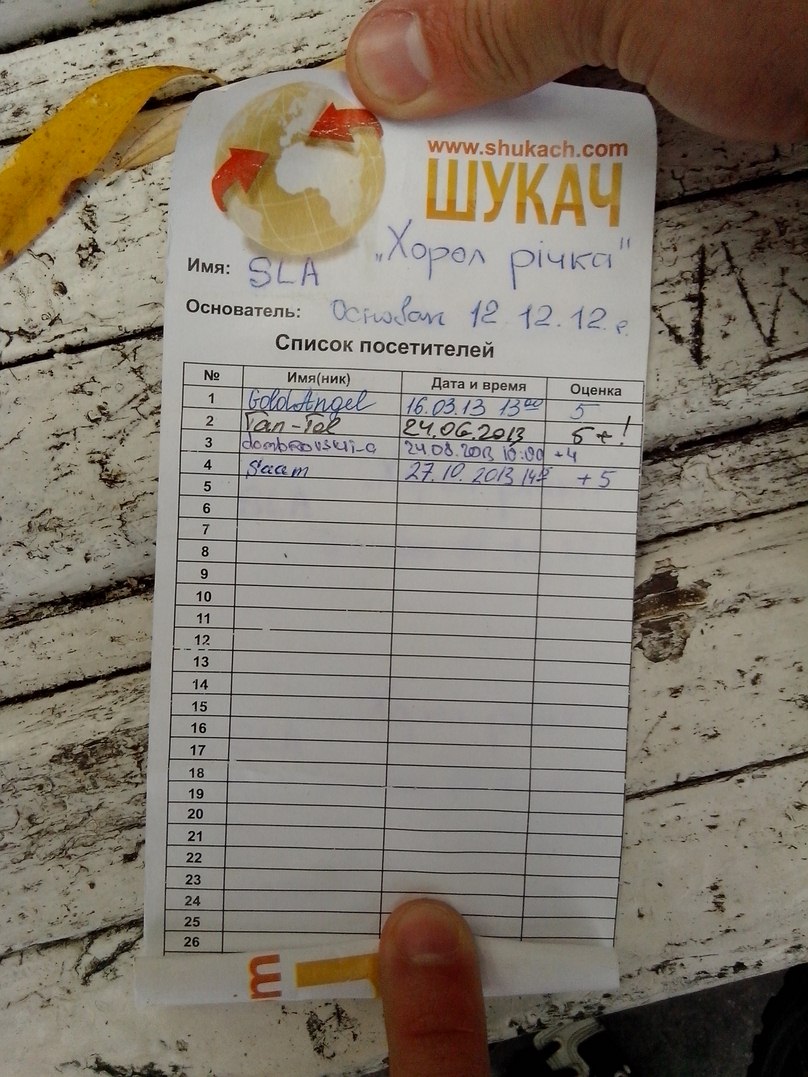 www.shukach.com
ШУКАЧ
„Хорол річка"
Имя: SLA
Основатель: Основан 12.12.12 г.
Список посетителей
№ Имя(ник) Дата и время Оценка
1 GoldAngel 16.03.13 13⁰⁰ 5
2 Tan-Tol 24.06.2013 5+!
3 dombrovski-a 24.08.2013 10:00 +4
4 Saam 27.10.2013 +5
5
6
7
8
9
10
11
12
13
14
15
16
17
18
19
20
21
22
23
24
25
26
m